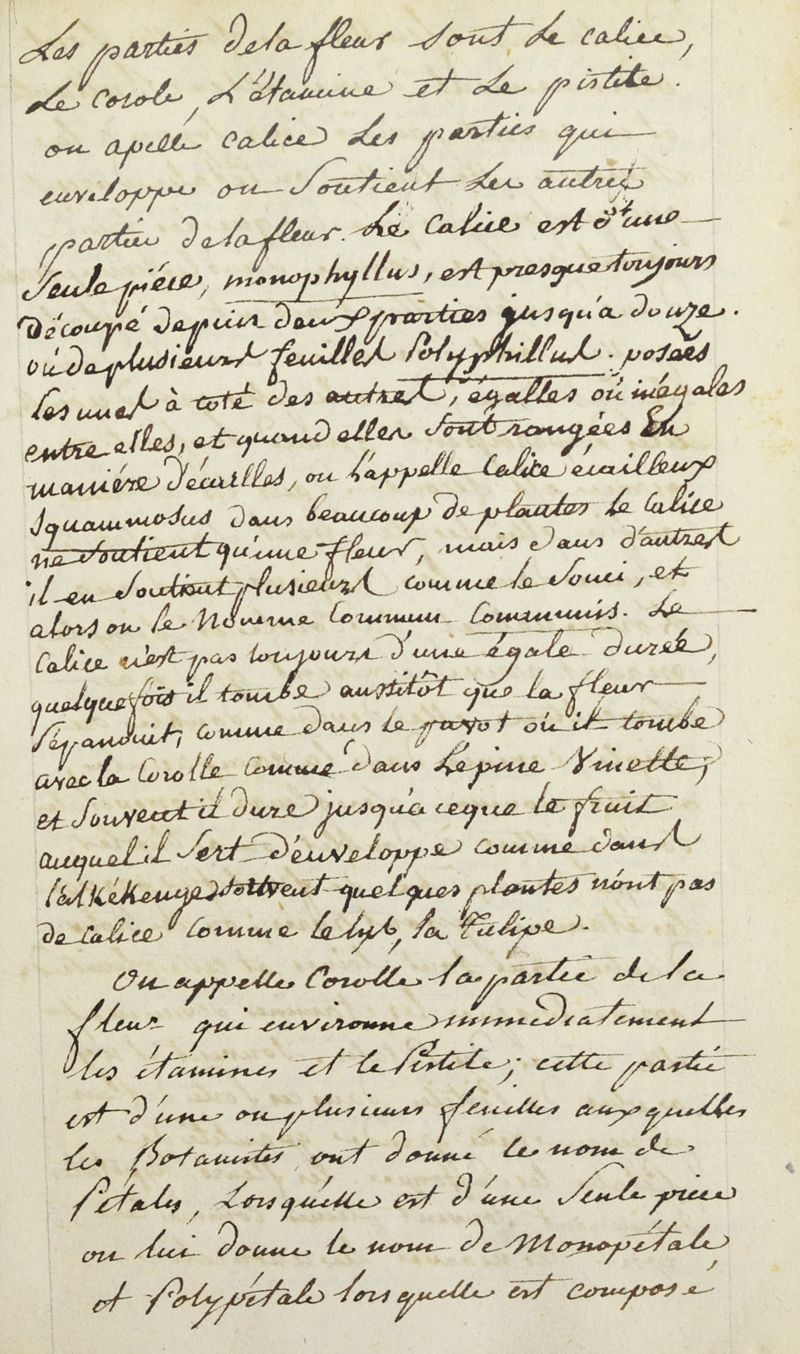 Les parties dela fleur sont Le calice,
Le corole, L'étamine et Le pistile.
on apelle calice Les parties qui
enveloppe ou Soutient Les autres
partier dela fleur. Le Calice est d'une
Seule piéce, monophyllus, est presque toujours
Découpé depuis deux parties jusqu'a douze.
oú de plusieurs feuilles Polyphillus. posées
les unes à coté des autres, égalles oú inégales
entre elles, et quand elles sont rangées En
maniére d'écailles, on l'appelle Calice écailleux
squammosus dans beaucoup de plantes le Calice
ne soutient qu'une fleur, mais dans d'autres
il en soutient plusieurs comme le Souci, et
alors on le Nomme Commun Communis. Le
Calice n'est pas toujours d'une égale durée,
quelquefois il tombe aussitôt que la fleur
s'épanouit, comme dans le pavot oú il tombe
avec la Corolle comme dans L'épine Vinette,
et Souvent il dure jusqu'a ceque le fruit
auquel il Sert d'enveloppe comme dans
l'alkékenge souvent quelques plantes n'ont pas
de calice comme le lys, la Tulipe.
On appelle Corolle la partie de la
fleur qui environne immediatement
les étamines et le Pistile; cette partie
est d'une ou plusieurs feuilles aux quelles
les Botanistes ont donné le nom de
Pétales, Lorsqu'elle est d'une Seule piece
on lui donne le nom de Monopétale
et Polypétale lorsquelle est composé